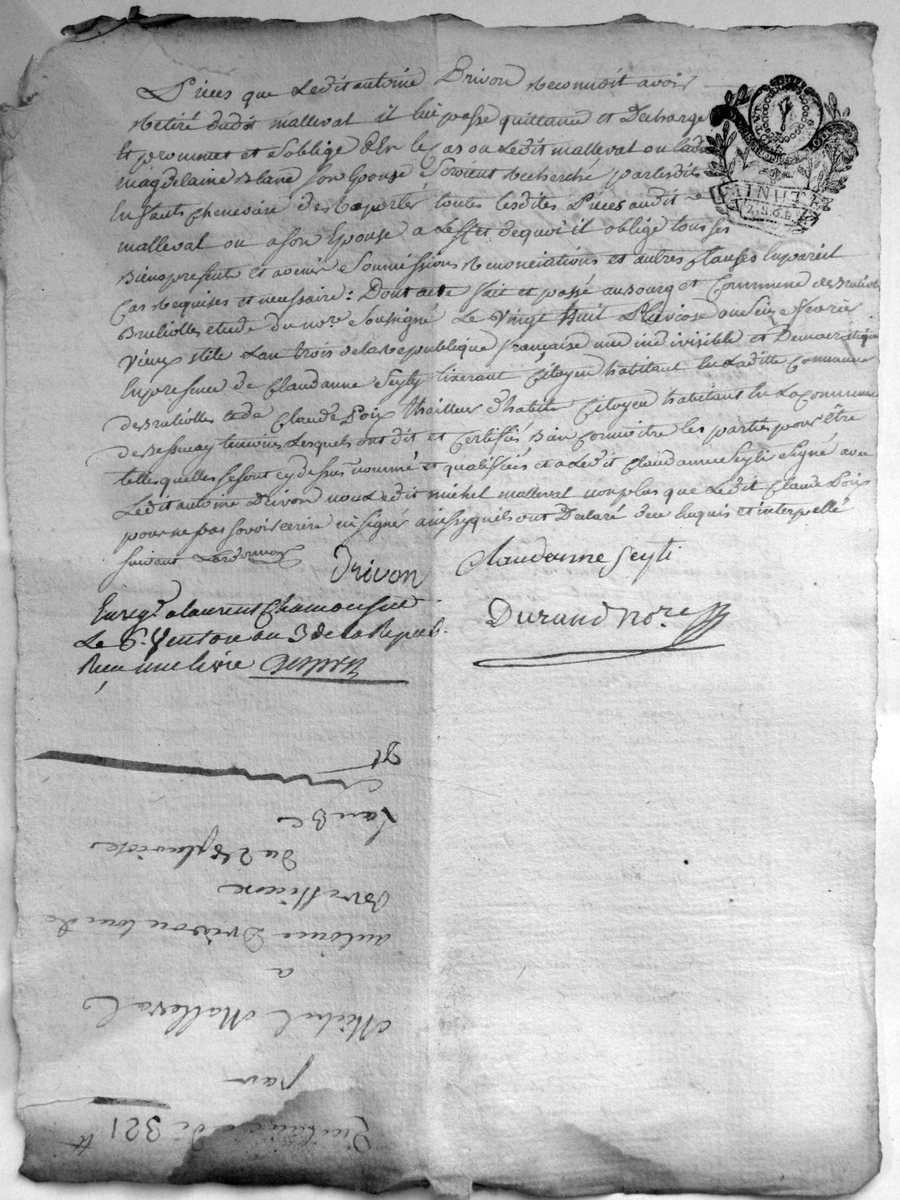 Pieces que Ledit antoine Drivon Reconnoit avoir
Retiré dudit malleval il lui passe quittance et Decharge
Et prommet et soblige En le Cas ou Ledit malleval ou Ladite
magdelaine Blanc son Epouse Soroient Recherché par lesdits
Enfants Chenevire de Raporter toutes lesdites Pieces audit
malleval ou a son Epouse a Leffet dequoi il oblige tous ses
Biens present et avenir Soumissions Renonciations et autres Clauses En pareil
Cas Requises et necessaire: Dont acte fait et passé au Bourg et Commune de Brulioles
Brulliolles etude du nore Soussigné Le vingt huit Pluviose ou Seize fevrier
vieux stile Lan trois de la Republique française une indivisible et Democratique
En presence de Claudanne Seyty tixerant Citoyen habitant En Laditte Commune
de Brulliolles et de Claude Poix thailleur dhabits Citoyen habitant En La Commune
de Bessenay temoins Lesquels ont dit et Certifiés Bien Connoitre les parties pour être
telles quelles se sont cy dessus nommé et qualiffiées et a Ledit Claudanne Seyti Signé avec
Ledit antoine Drivon non Ledit michel malleval non plus que Ledit Claude Poix
pour ne pas savoir ecrire ni signer ainsy quils ont Declaré deu Enquis et interpellé
suivant Lordonnance
Drivon Claudanne Seyti
Enregé a laurent Chamousset
Le 6. Ventou an 3 de la Repub.
Reçu une livre
Durand Nore
MINUTE
Quittance de 321 tt
par
Michel Malleval
a
antoine Drivon
Du 28 pluviose
Lan 3e